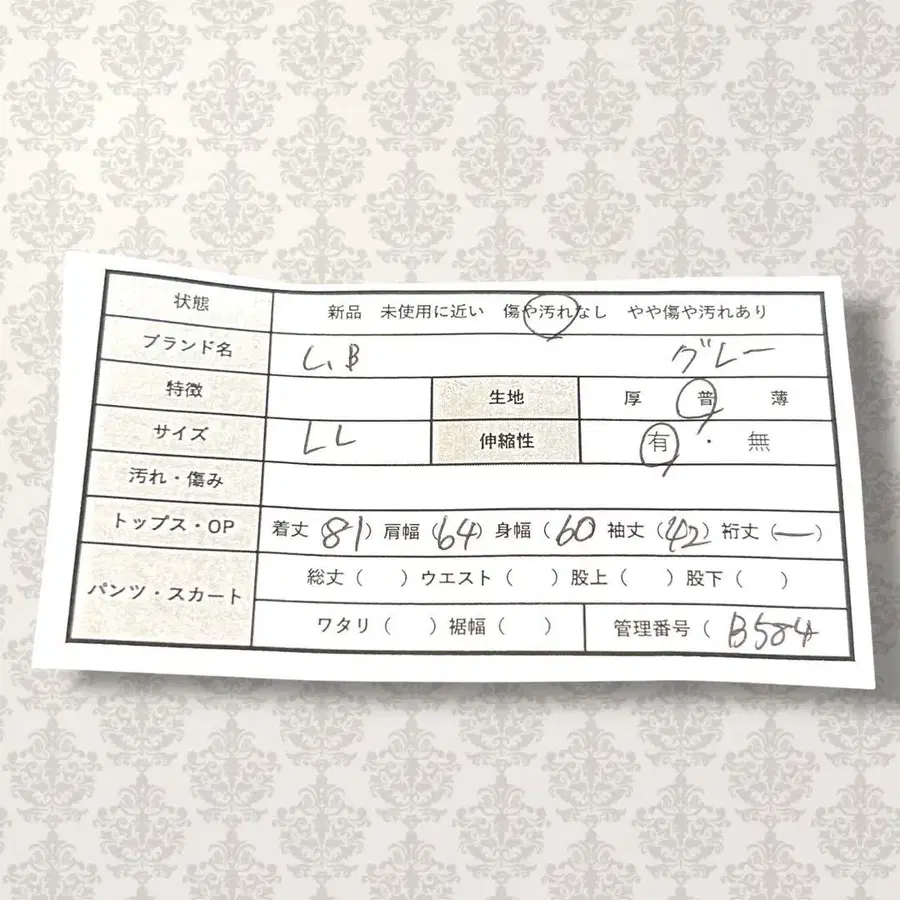 状態 新品 未使用に近い 傷や汚れなし やや傷や汚れあり
ブランド名 L.B グレー
特徴 生地 厚 普 薄
サイズ LL 伸縮性 有 ・ 無
汚れ・傷み
トップス・OP 着丈(81) 肩幅(64) 身幅(60 袖丈(42) 裄丈(ー)
パンツ・スカート 総丈( ) ウエスト( ) 股上( ) 股下( )
ワタリ( ) 裾幅( ) 管理番号( B584